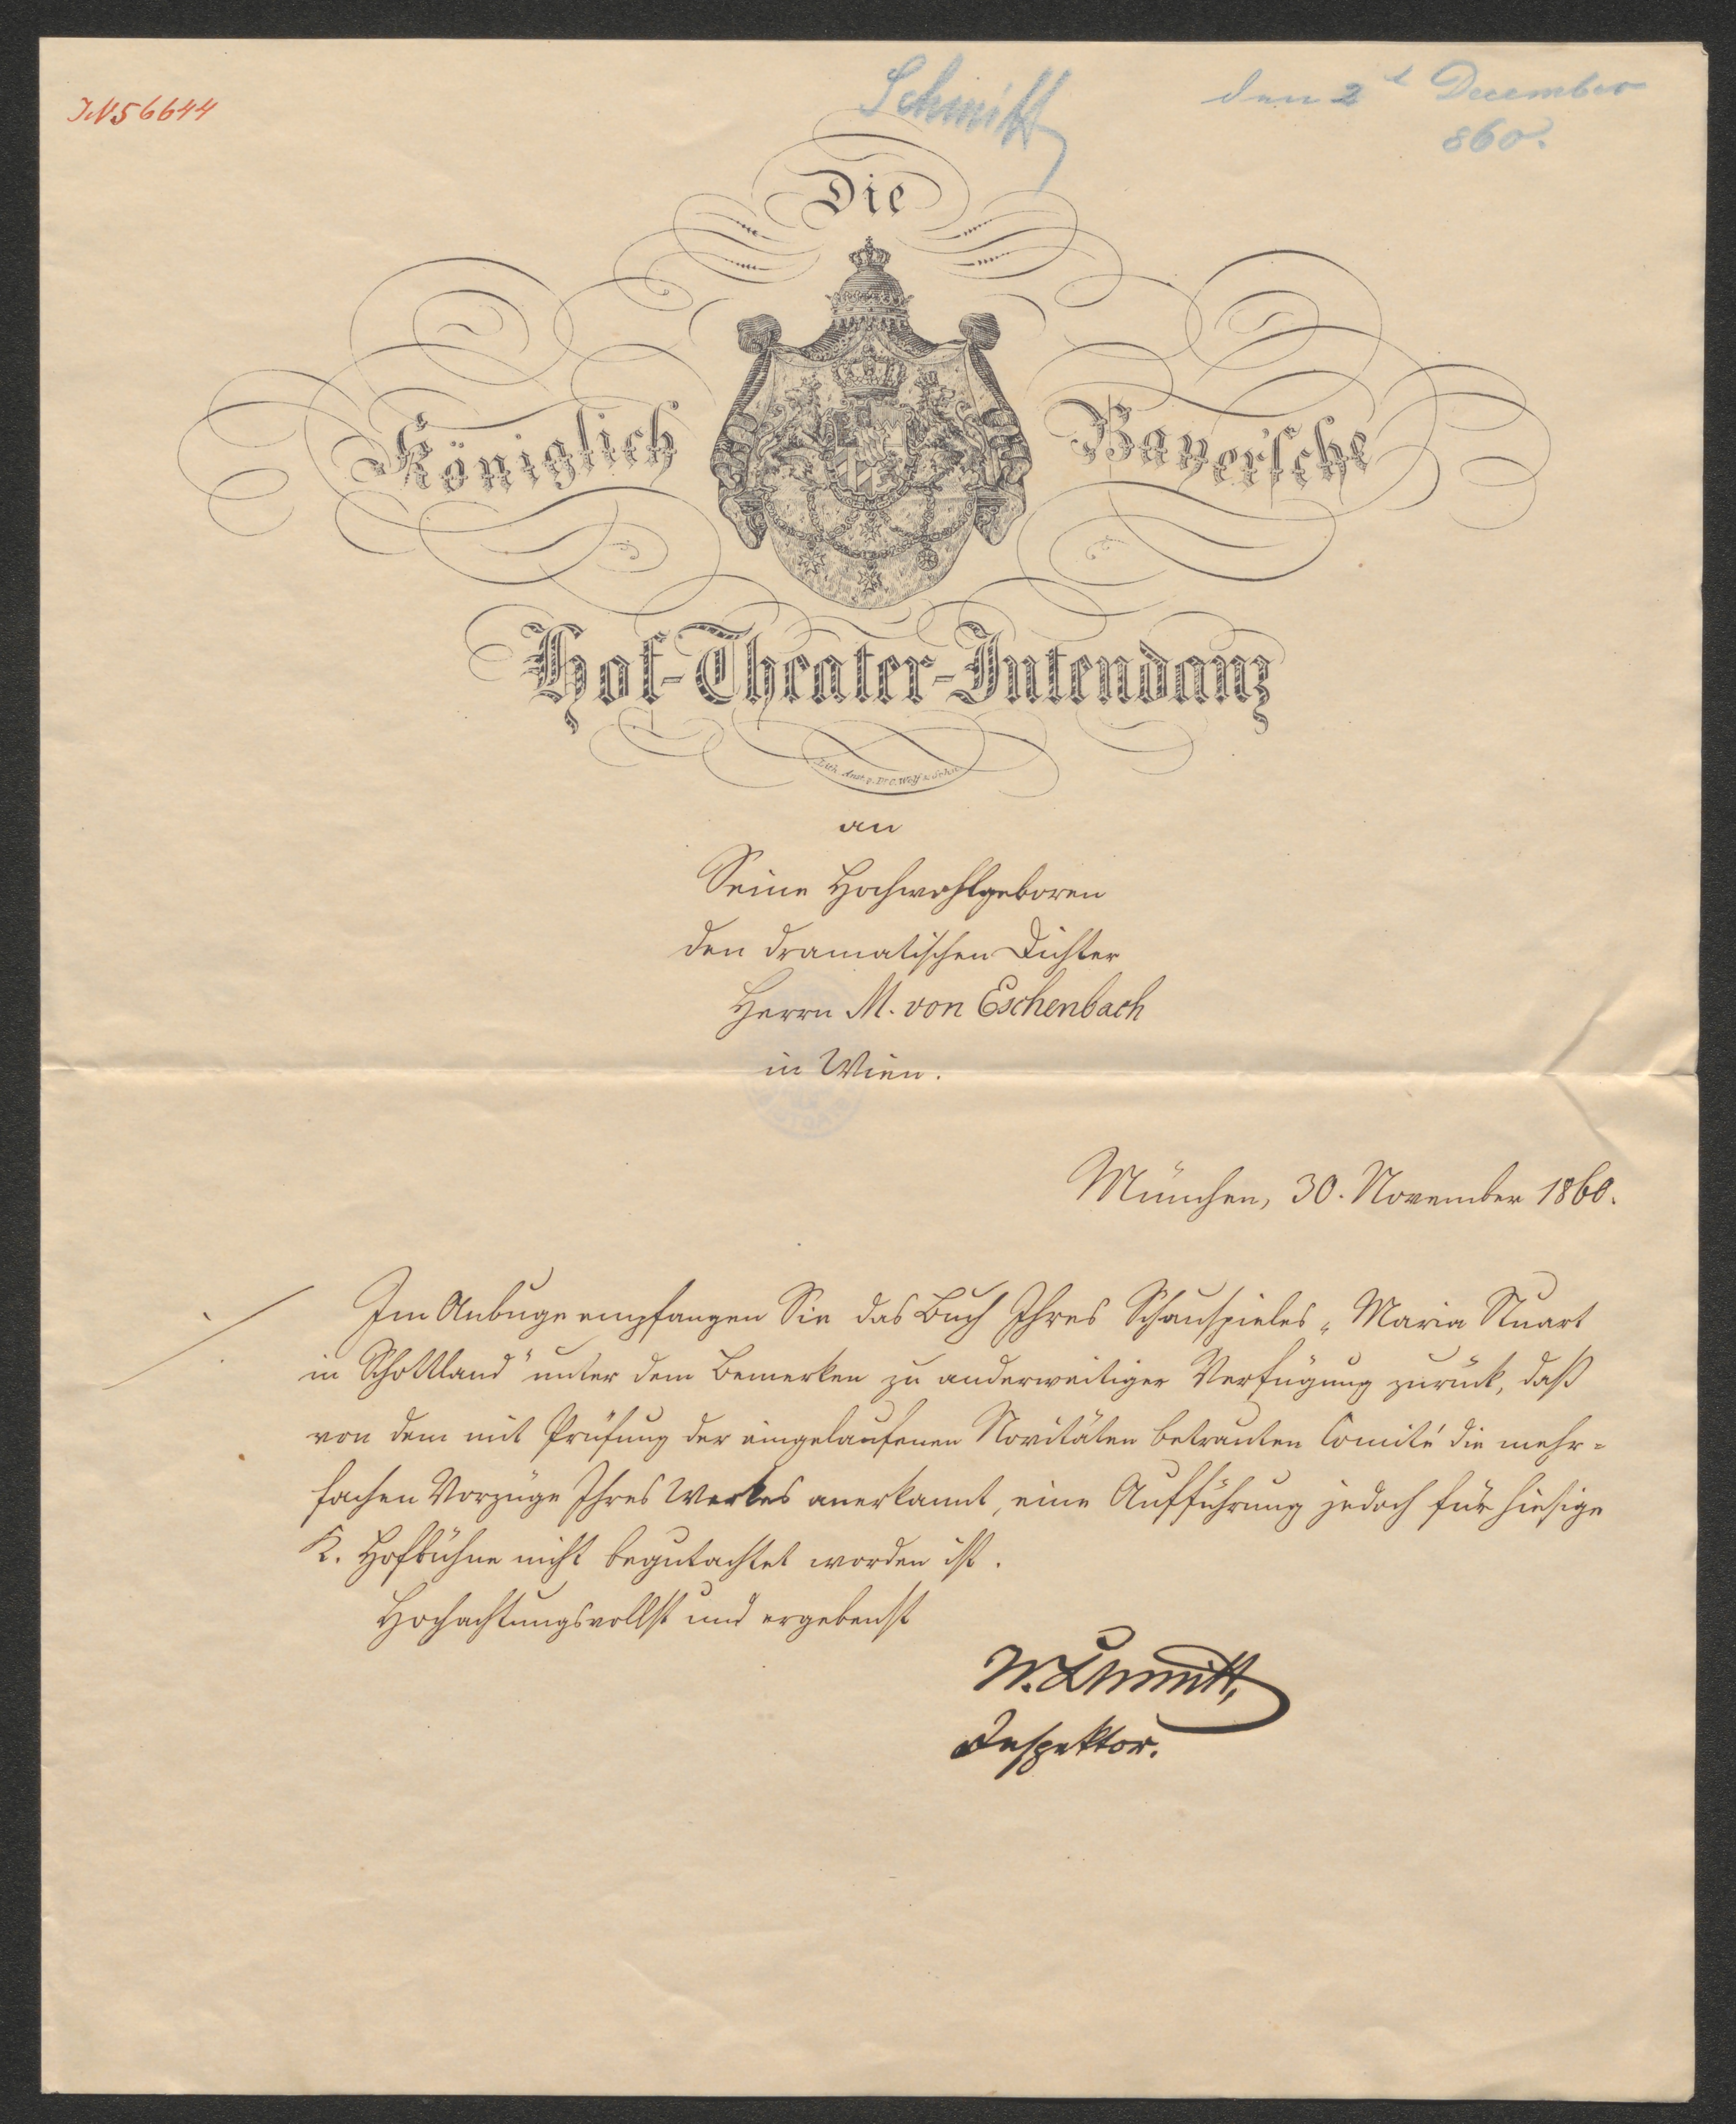 IN 56644
Schmitt
den 2t December
860.
Die
Königlich Bayer'sche
Hof-Theater-Intendanz
Lith. Anst. v. Dr. C. Wolf & Sohn
an
Seine Hochwohlgeboren
den dramatischen Dichter
Herrn M. von Eschenbach
in Wien.
München, 30. November 1860.
Im Anbuge empfangen Sie das Buch Ihres Schauspieles „Maria Stuart
in Schottland" unter dem Bemerken zu anderweitiger Verfügung zurück, daß
von dem mit Prüfung der eingelaufenen Novitäten betrauten Comité die mehr=
fachen Vorzüge Ihres Werkes anerkannt, eine Aufführung jedoch für hiesige
K. Hofbühne nicht begutachtet worden ist.
Hochachtungsvollst und ergebenst
W. Schmitt,
Inspektor.